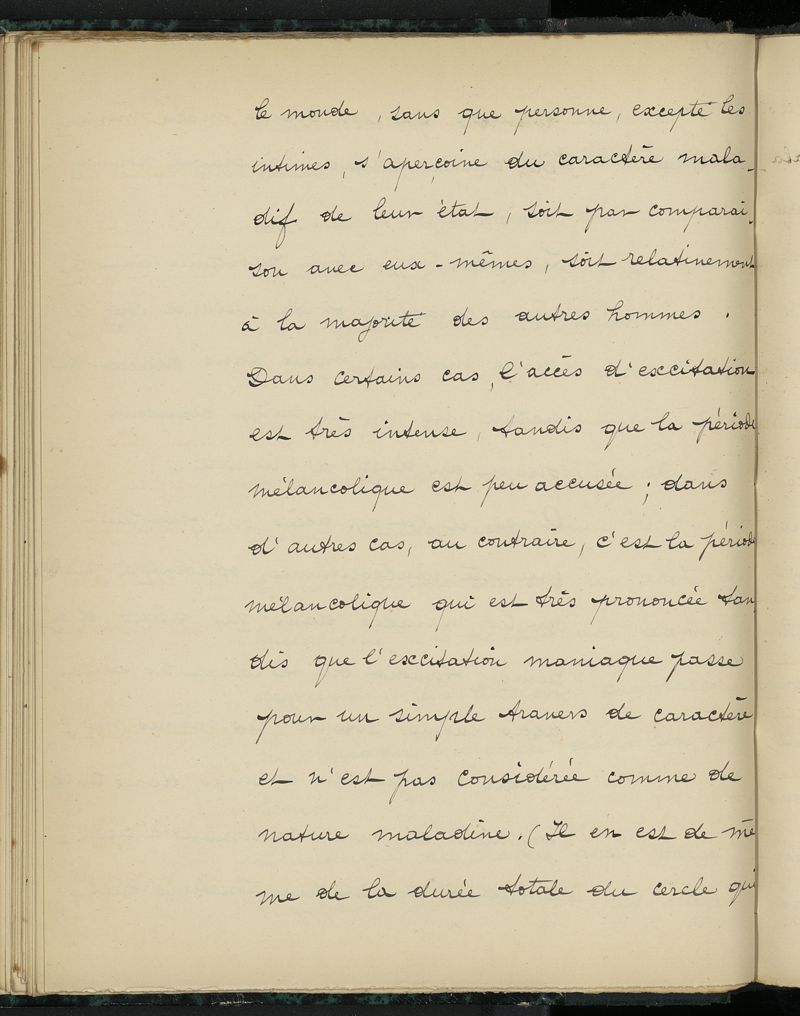 le monde, sans que personne, excepté les
intimes, s'aperçoive du caractère mala-
dif de leur état, soit par comparai-
son avec eux-mêmes, soit relativement
à la majorité des autres hommes.
Dans certains cas, l'accès d'excitation
est très intense, tandis que la période
mélancolique est peu accusée ; dans
d'autres cas, au contraire, c'est la période
mélancolique qui est très prononcée tan
dis que l'excitation maniaque passe
pour un simple travers de caractère
et n'est pas considérée comme de
nature maladive. (Il en est de mê
me de la durée totale du cercle qui